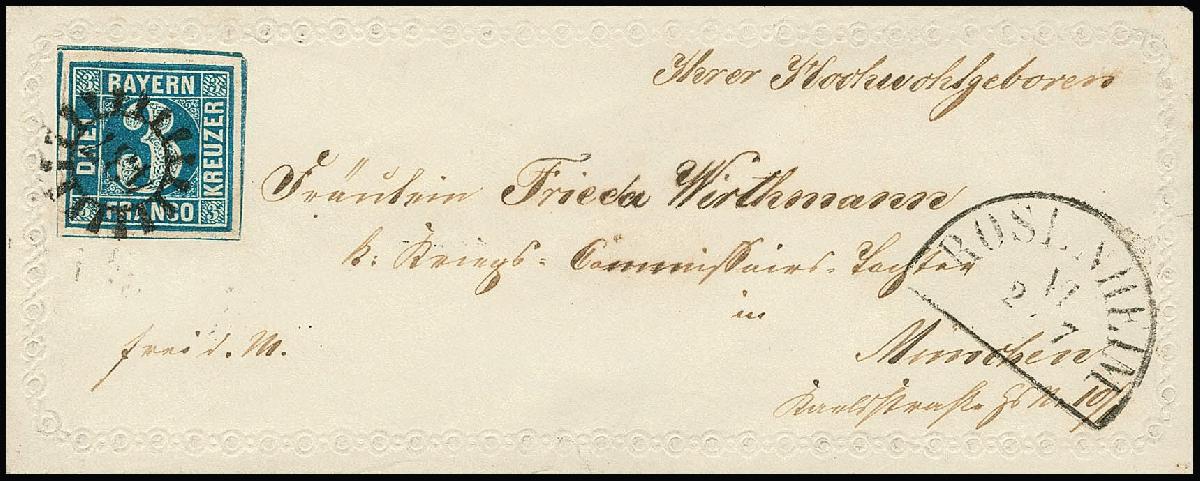 BAYERN
DREI
3
KREUZER
FRANCO
Ihrer Hochwohlgeboren
Fräulein Frieda Wirthmann
k: Kriegs-Commissairs-Tochter
in
München
Karlsstraße Hs N. 10/
frei d. M.
ROSENHEIM
17
2 7